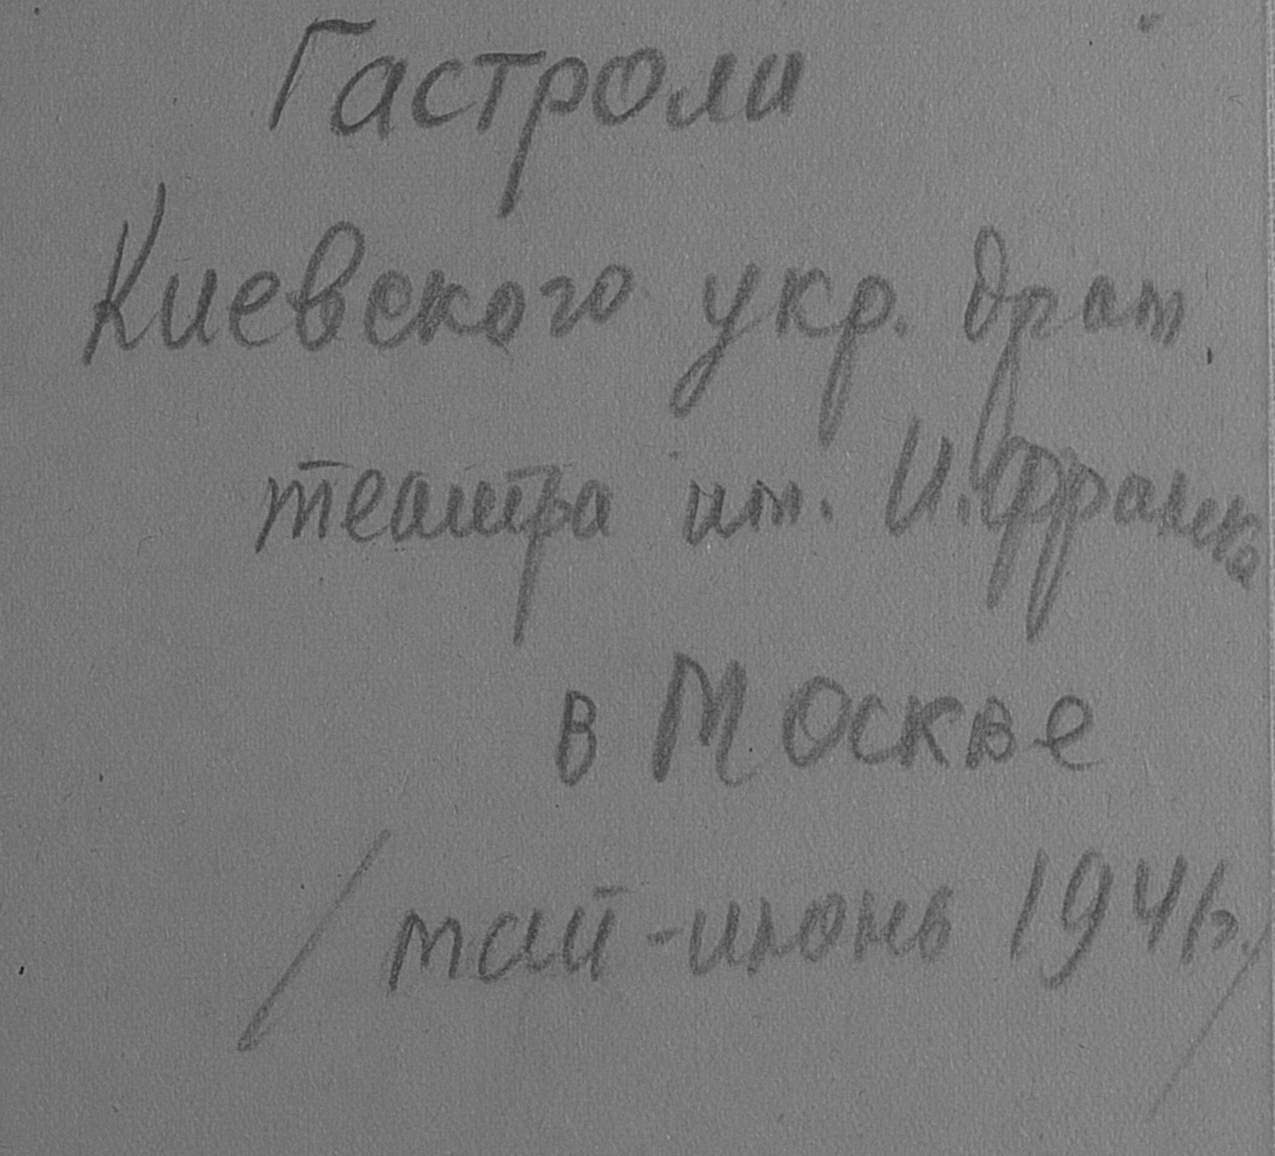 Гастроли
Киевского укр. драм.
театра им. И. Франка
в Москве
/май-июнь 1941г./